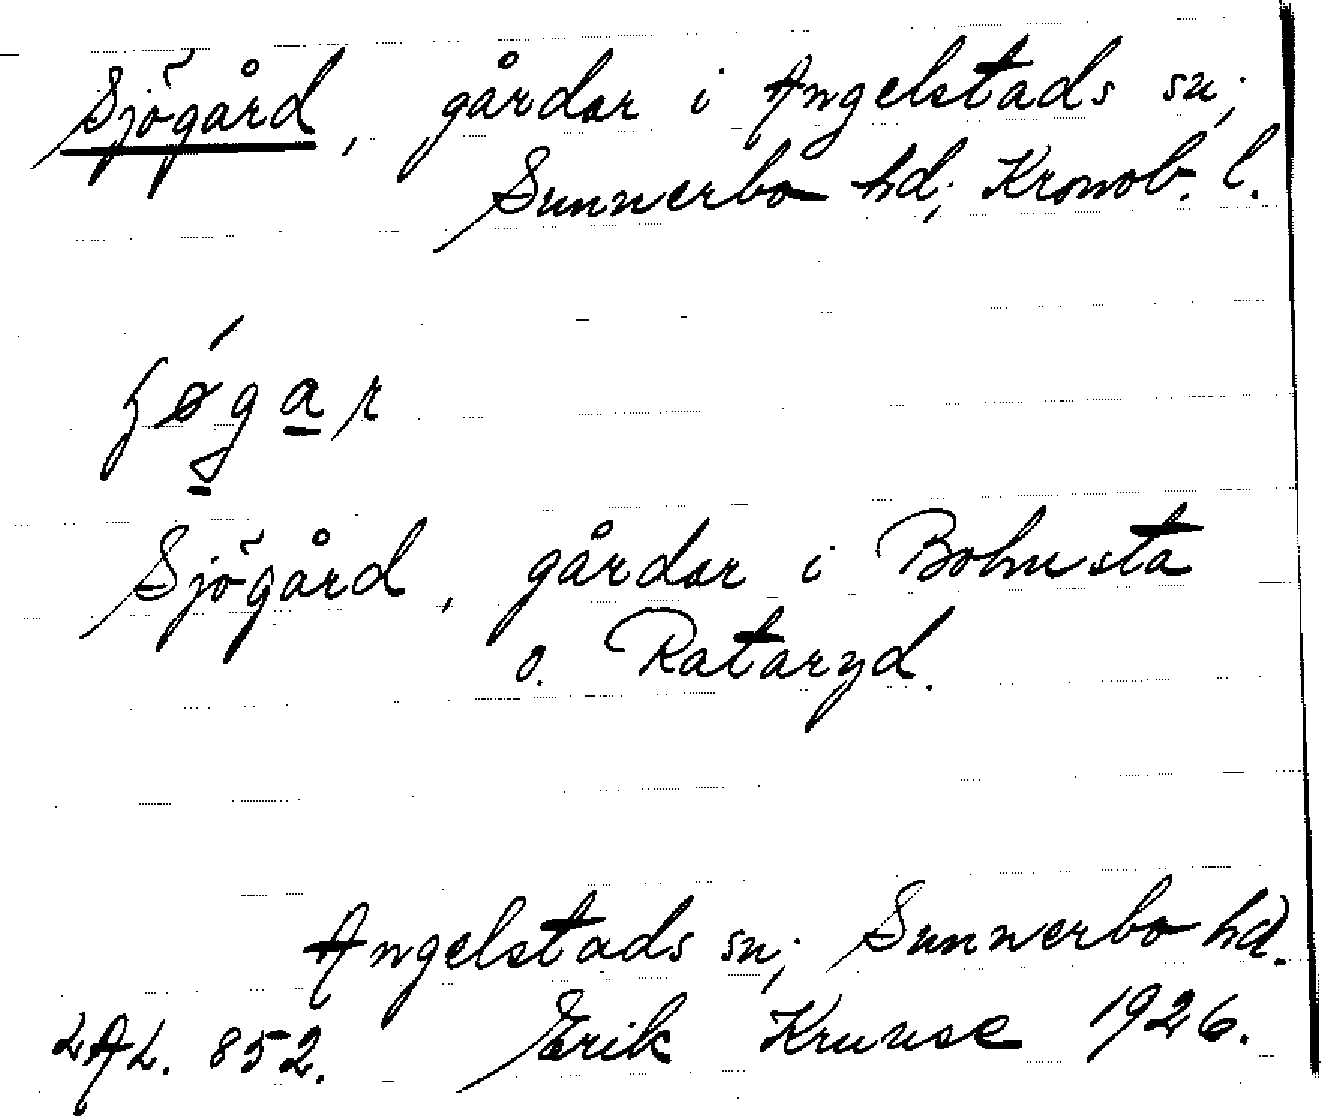 Sjögård, gårdar i Angelstads sn;
Sunnerbo hd; Kronob. l.
Sjögård, gårdar i Bohusta
o. Rataryd.
Angelstads sn; Sunnerbo hd.
LAL. 852. Erik Kruuse 1926.